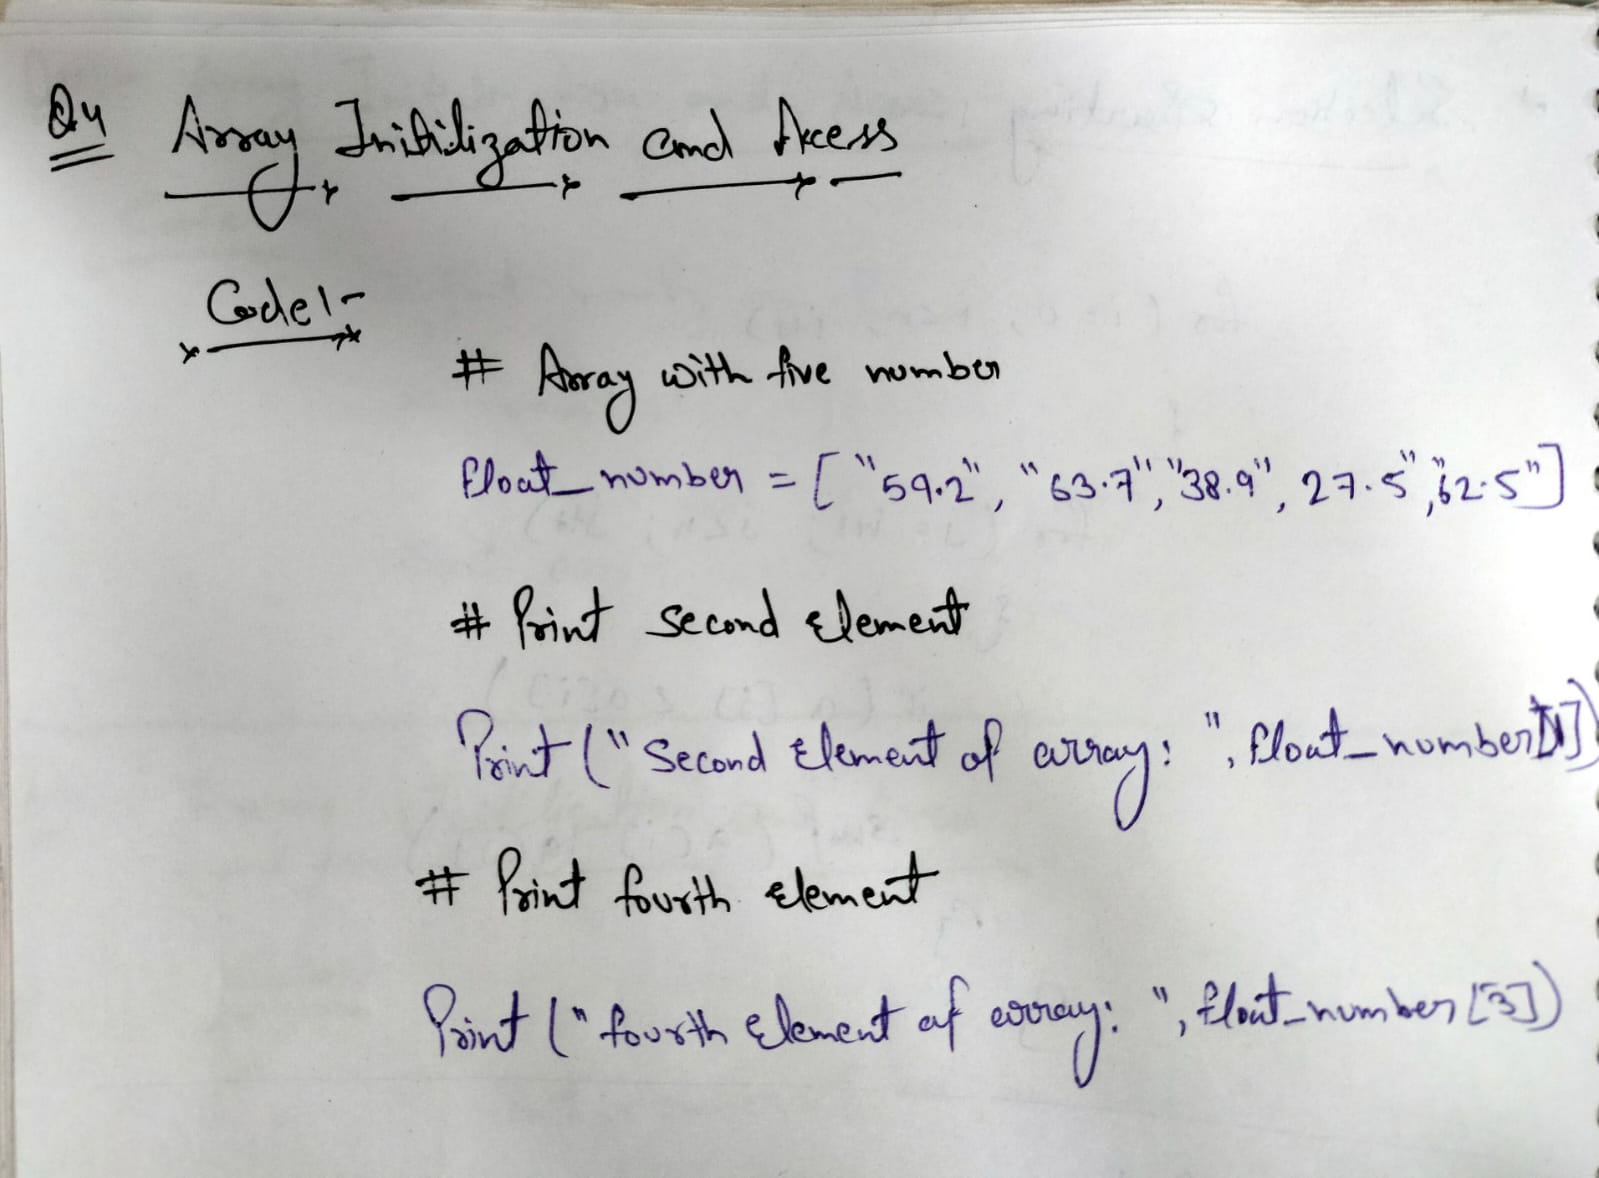 Q4 Array Initilization and Access
Code:-
# Array with five number
float_number = ["59.2", "63.7", "38.9", 27.5", "62.5"]
# Print second element
Print ("Second element of array: ", float_number[1])
# Print fourth element
Print ("fourth element of array: ", float_number [3])